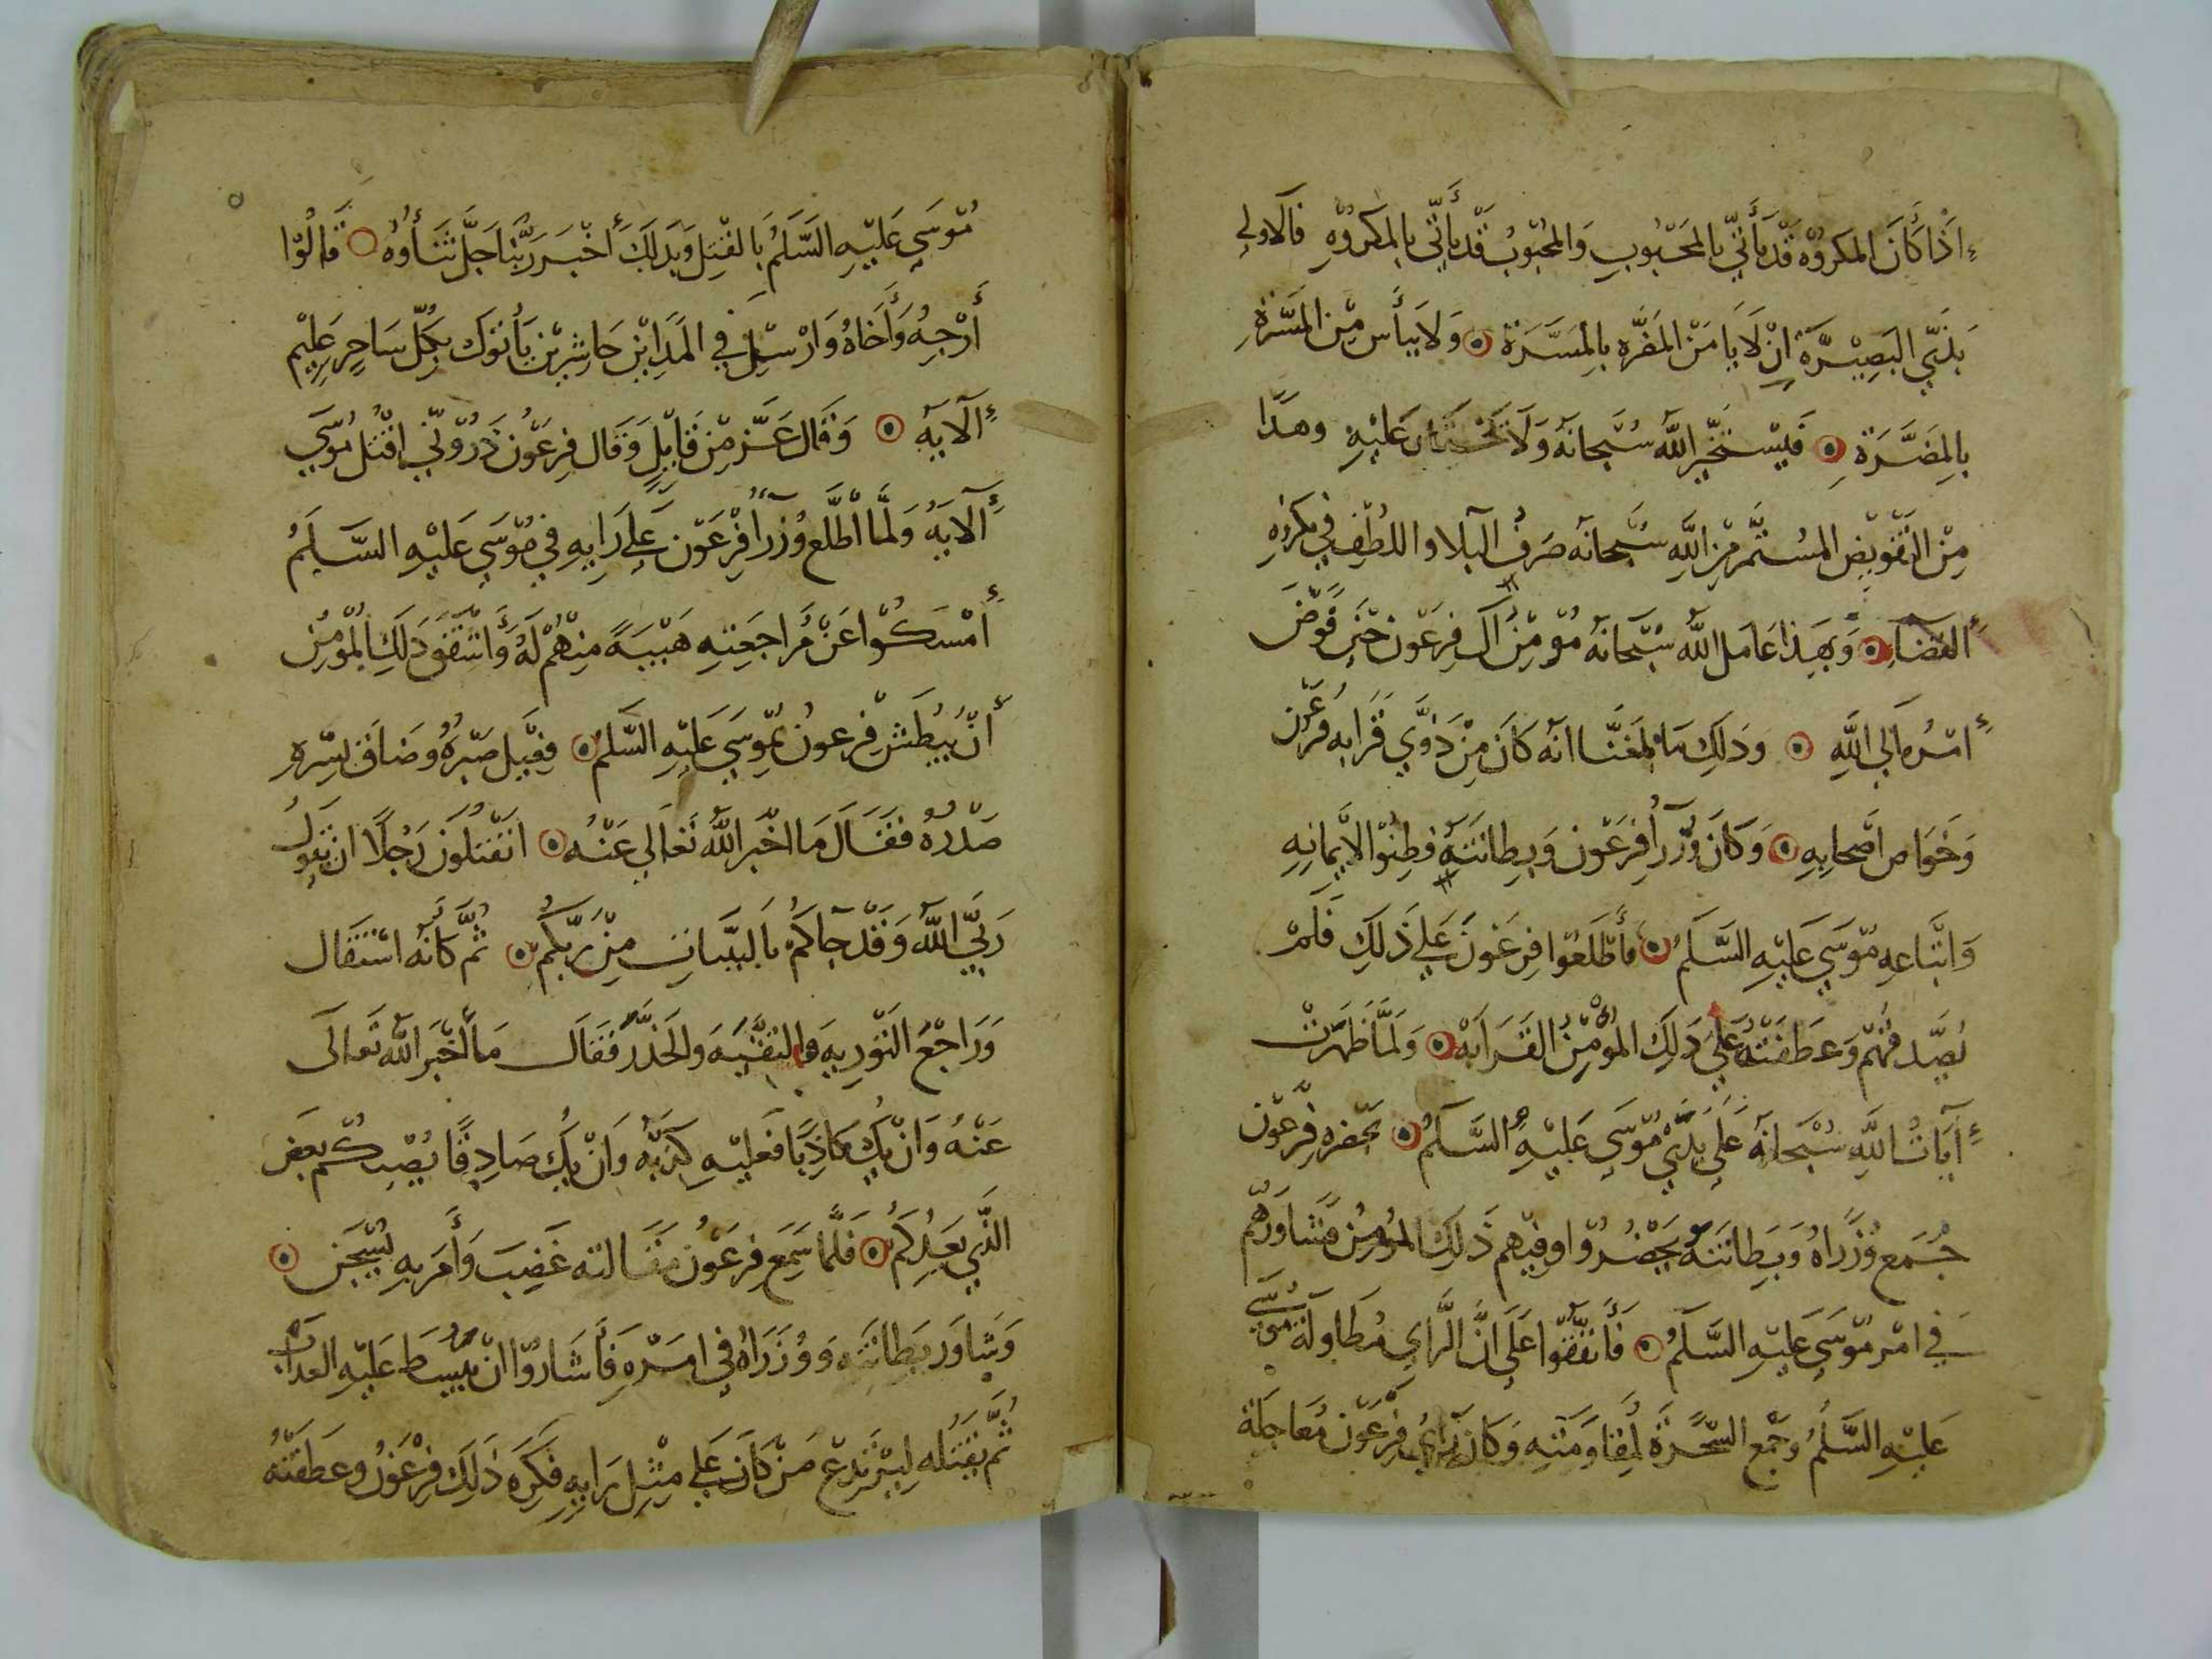 اذا كان المكروه قد يأتي بالمحبوب والمحبوب قد يأتي بالمكروه فالاولى
بذي البصيرة ان لا يامن المضره بالمسرة ولا ييأس من المسرة
بالمضرة فليستخير الله سبحانه ولا عليه وهذا
من التفويض المستثمر من الله سبحانه صرف البلا واللطف في مكروه
القضاء وبهذا عامل الله سبحانه مؤمن آل فرعون حين فوض
امره الى الله وذلك ما بلغنا انه كان من ذوي قرابه فرعون
وخواص اصحابه وكان وزرآ فرعون وبطانته فطنوا لايمانه
واتباعه موسى عليه السلم فأطلعوا فرعون على ذلك فلم
يصدقهم وعطفته على ذلك المؤمن القرابه ولما ظهرت
آيات الله سبحانه على يدي موسى عليه السلم بحضره فرعون
جمع وزراه وبطانته بحضروا وفيهم ذلك المؤمن فشاورهم
في امر موسى عليه السلم فأتفقوا على ان الراي مطاولة موسى
عليه السلم وجمع السحرة لمقاومته وكان راي فرعون معاجلة
موسى عليه السلم بالقتل وبذلك أخبر ربنا جل ثناؤه قالوا
أرجه وأخاه وارسل في المداين حاشرين يأتوك بكل ساحر عليم
الآيه وقال عز من قايل وقال فرعون ذروني اقتل موسى
الآيه ولما اطلع وزرآ فرعون على رايه في موسى عليه السلم
أمسكوا عن مراجعته هيبة منهم له وأشفق ذلك المؤمن
أن يبطش فرعون بموسى عليه السلم فعيل صبره وضاق بسره
صدره فقال ما اخبر الله تعالى عنه اتقتلون رجلا ان يقول
ربي الله وقد جاكم بالبينات من ربكم ثم كانه استقال
وراجع التوريه والتقيه والحذر فقال ما أخبر الله تعالى
عنه وان يك كاذبا فعليه كذبه وان يك صادقا يصبكم بعض
الذي يعدكم فلما سمع فرعون مقالته غضب وأمر به ليسجن
وشاور بطانته ووزراه في امره فأشاروا ان يبسط عليه العذاب
ثم يقتله ليرتدع من كان على مثل رايه فكره ذلك فرعون وعطفته